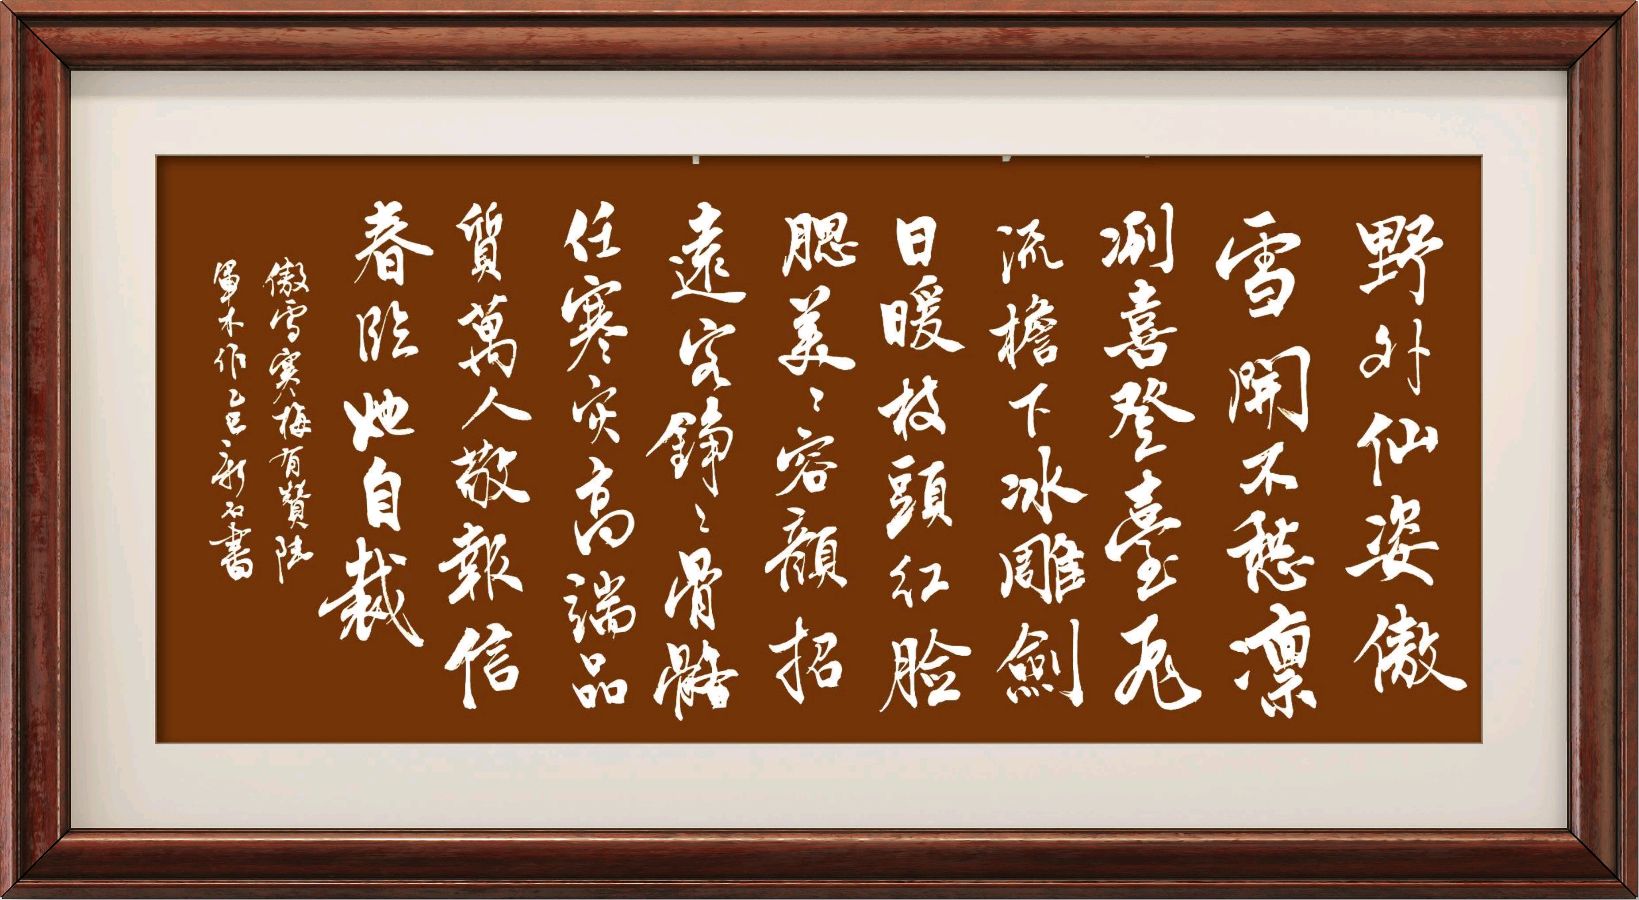 野外仙姿傲
雪開不愁凛
冽喜登臺飛
流檐下冰雕劍
日暖枝頭紅臉
腮美〻容顔招
遠客錚〻骨骼
任寒災高端品
質萬人敬報信
春臨她自裁
傲雪寒梅有贊陆
軍木作乙巳新石書